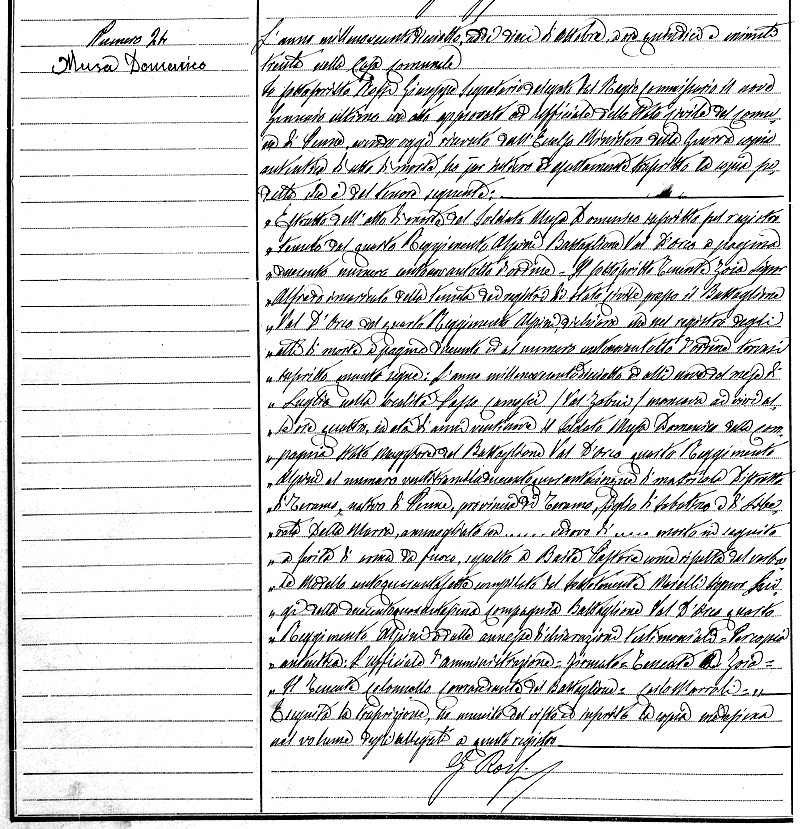 Numero 24
Musa Domenico
L'anno millenovecentodiciotto, addì dieci di Ottobre, a ore quindici e minuti
trenta nella Casa comunale
Io sottoscritto Rossi Giuseppe Segretario delegato dal Regio Commissario il nove
Gennaio ultimo con atto approvato ad Ufficiale dello Stato Civile del comu-
ne di Penne, avendo oggi ricevuto dall' Ministero della Guerra copia
autentica di atto di morte, ho per intero ed esattamente trascritto la copia pre-
detta che è del tenore seguente:
" Estratto dell'atto di morte del Soldato Musa Domenico inscritto sul registro
" tenuto dal quarto Reggimento Alpini Battaglione Val D'Orco a pagina
" duecento numero centonovantotto d'ordine = Il sottoscritto Tenente Zoia Signor
" Alfredo incaricato della tenuta dei registri di stato civile presso il Battaglione
" Val D'Orco del quarto Reggimento Alpini, dichiara che nel registro degli
" atti di morte a pagina duecento ed al numero centonovantotto d'ordine trovasi
" inscritto quanto segue: L'anno millenovecentodiciotto ed alli nove del mese di
" Luglio nella località Passo (Val Zebrù) mancava ai vivi al-
" le ore quattro, in età di anni ventinove il Soldato Musa Domenico della com-
" pagnia Stato Maggiore del Battaglione Val D'Orco quarto Reggimento
" Alpini al numero di matricola Distretto
" di Teramo, nativo di Penne, provincia di Teramo, figlio di Sabatino e di Libe-
" rata Della Marra, ammogliato con ...... vedovo di ...... morto in seguito
" a ferita di arma da fuoco, sepolto a Baita Pastore come risulta dal verba-
" le Modello centoquarantasette compilato dal Sottotenente Signor Lui-
" gi della compagnia Battaglione Val D'Orco quarto
" Reggimento Alpini e dalle annesse dichiarazioni testimoniali = Per copia
" autentica: L'ufficiale d'amministrazione = firmato = Tenente A Zoia =
" Il Tenente Colonnello Comandante del Battaglione = Carlo =
Eseguita la trascrizione, ho munito del visto ed inserito la copia medesima
nel volume degli allegati a questo registro
G Rossi